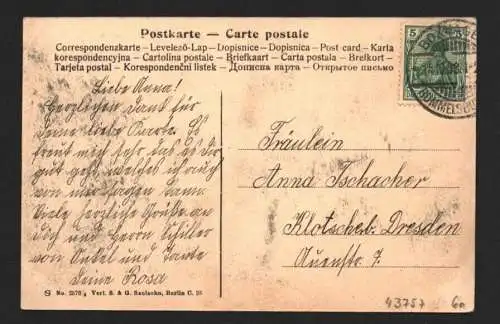 Postkarte — Carte postale
Correspondenzkarte – Levelező-Lap – Dopisnice – Dopisnica – Post card – Karta
korespondencyjna – Cartolina postale – Briefkaart – Carta postala – Brefkort –
Tarjeta postal – Korespondenční lístek – Дописна карта – Открытое письмо
5
Liebe Anna!
Herzlichen Dank für
Deine liebe Karte. Es
freut mich sehr das es Dir
gut geht, welches ich auch
von mir sagen kann.
Viele herzliche Grüße an
Dich und Herrn
von Onkel und Tante
Deine Rosa
Fräulein
Anna Tschacher
Klotsche b. Dresden
Auenstr. 7.
S No. Verl. S. & G. Saulsohn, Berlin C.
43757 6a